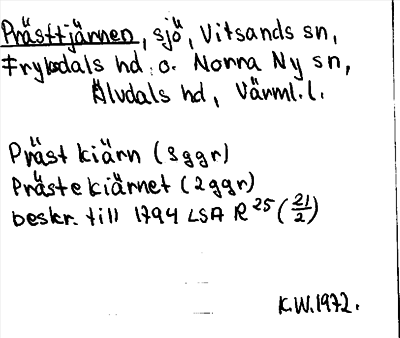 Prästtjärnen, sjö, Vitsands sn,
Fryksdals hd o. Norra Ny sn,
Älvdals hd, Värml. l.
Präst kiärn (3 ggr)
Präste kiärnet (2 ggr)
beskr. till 1794 LSA R 25 (21/2)
K.W. 1972.